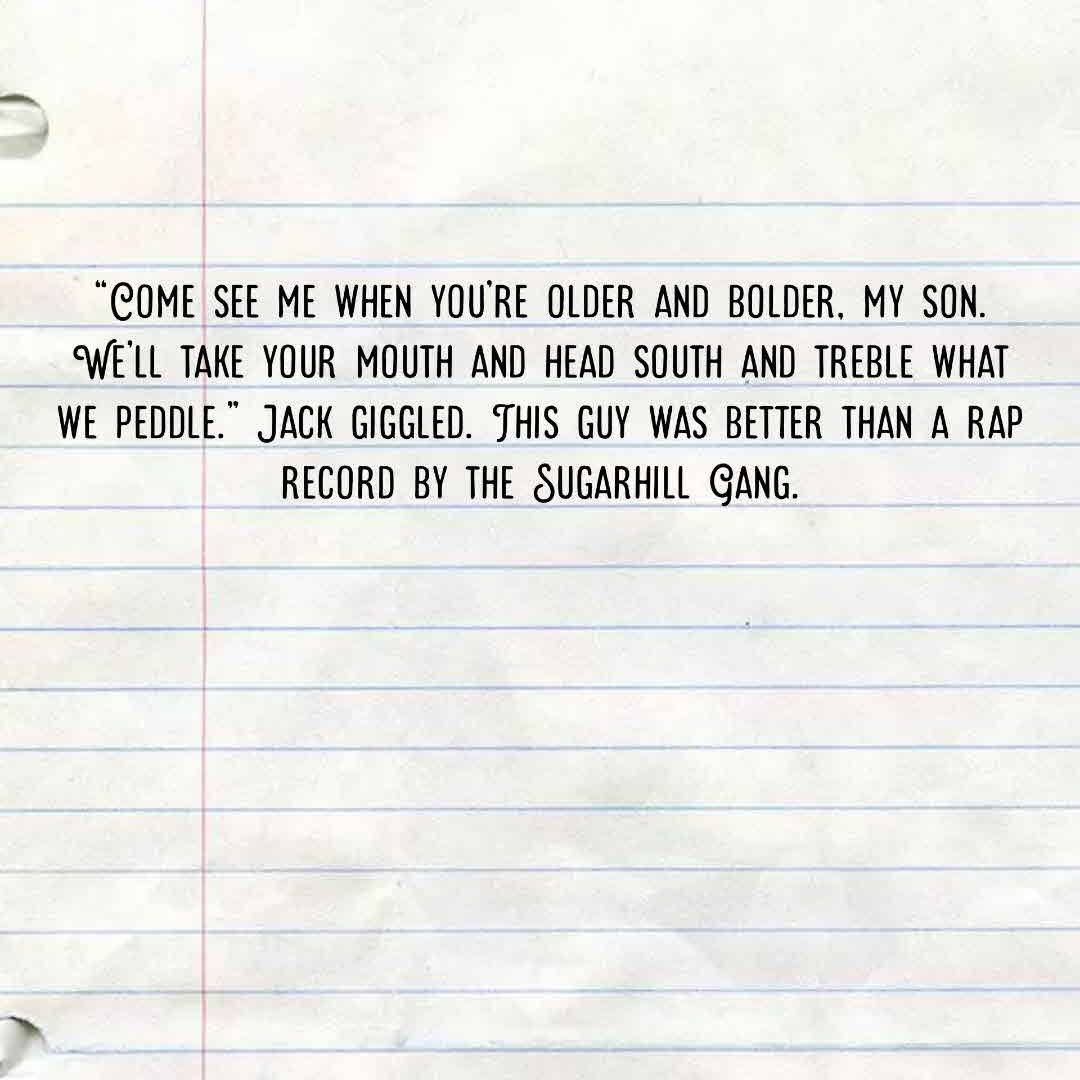 “Come see me when you’re older and bolder, my son.
We’ll take your mouth and head south and treble what
we peddle.” Jack giggled. This guy was better than a rap
record by the Sugarhill Gang.